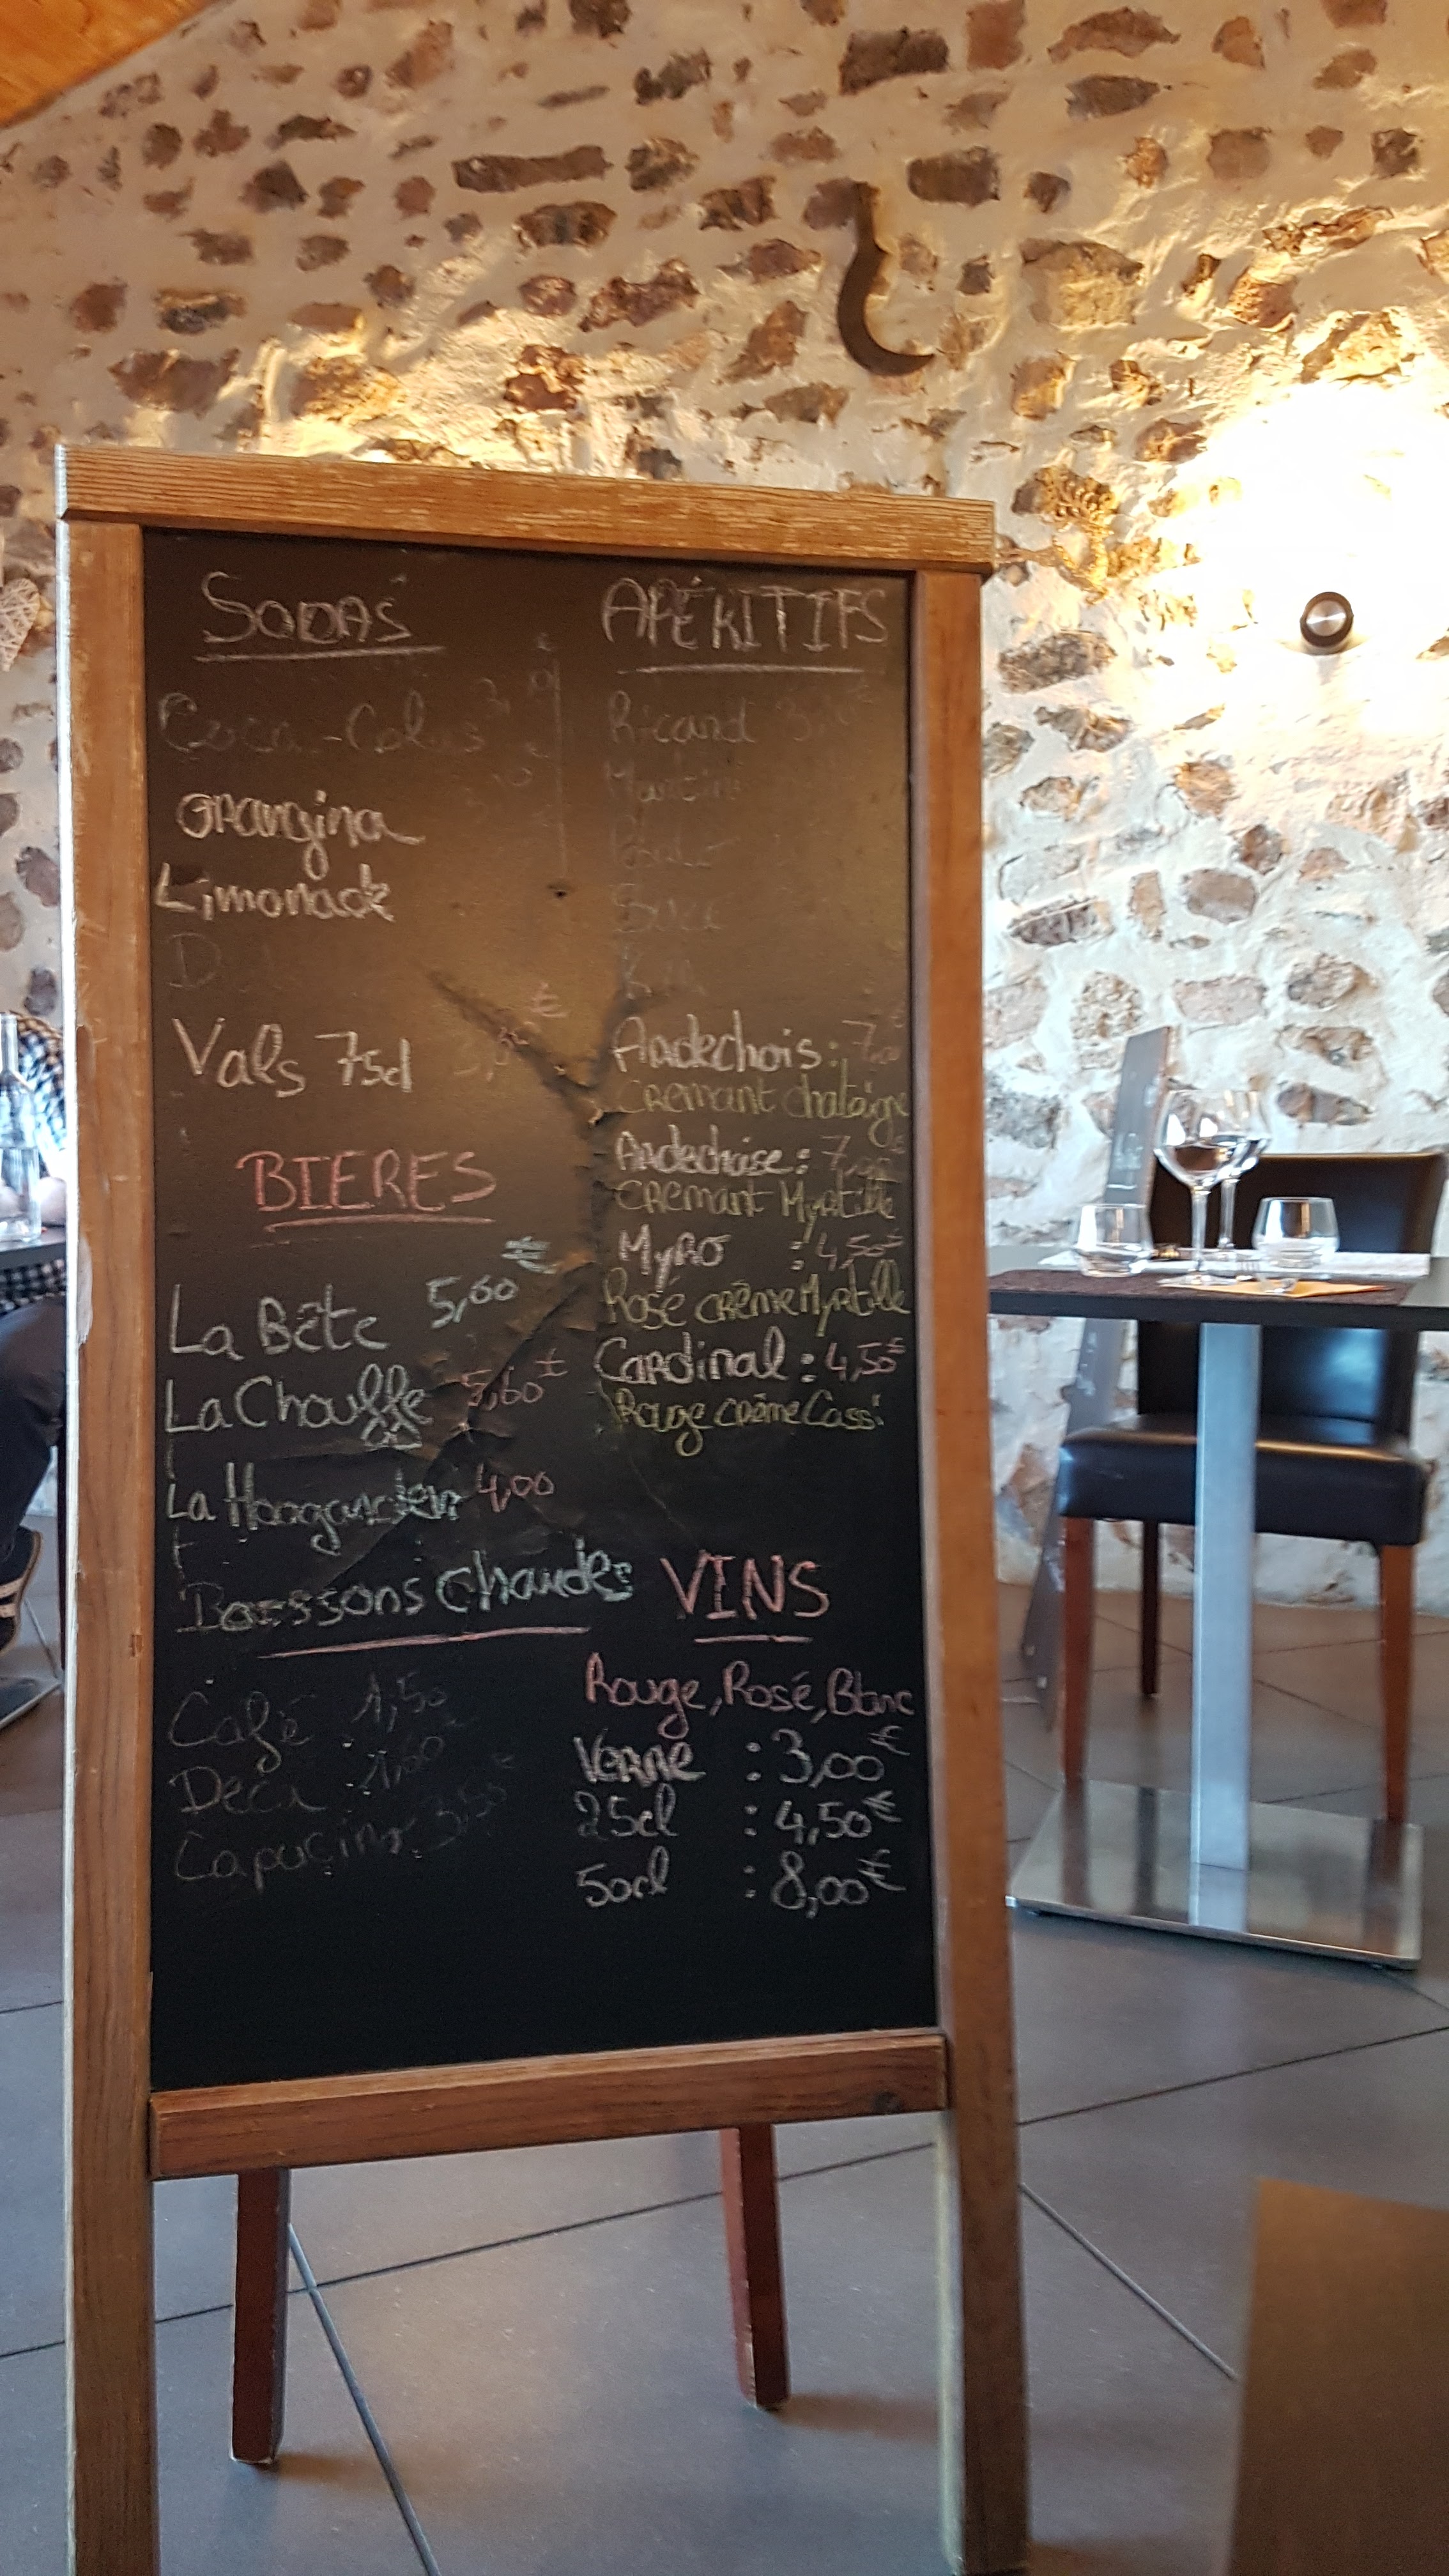 SODAS
Coca-Cola
Orangina
Limonade
Vals 75cl
BIERES
La Bête 5,60 €
La Chouffe 5,60 €
La Hoogarden 4,00
Boissons chaudes
Café : 1,50
Déca : 1,60
Capucino 3,50 €
APÉRITIFS
Ricard
Martini
Ardechois : 7,00 €
Crémant chataigne
Ardechoise : 7,00 €
Crémant Myrtille
Myro : 4,50 €
Rosé crème Myrtille
Cardinal : 4,50 €
Rouge crème Cassi
VINS
Rouge, Rosé, Blanc
Verre : 3,00 €
25cl : 4,50 €
50cl : 8,00 €